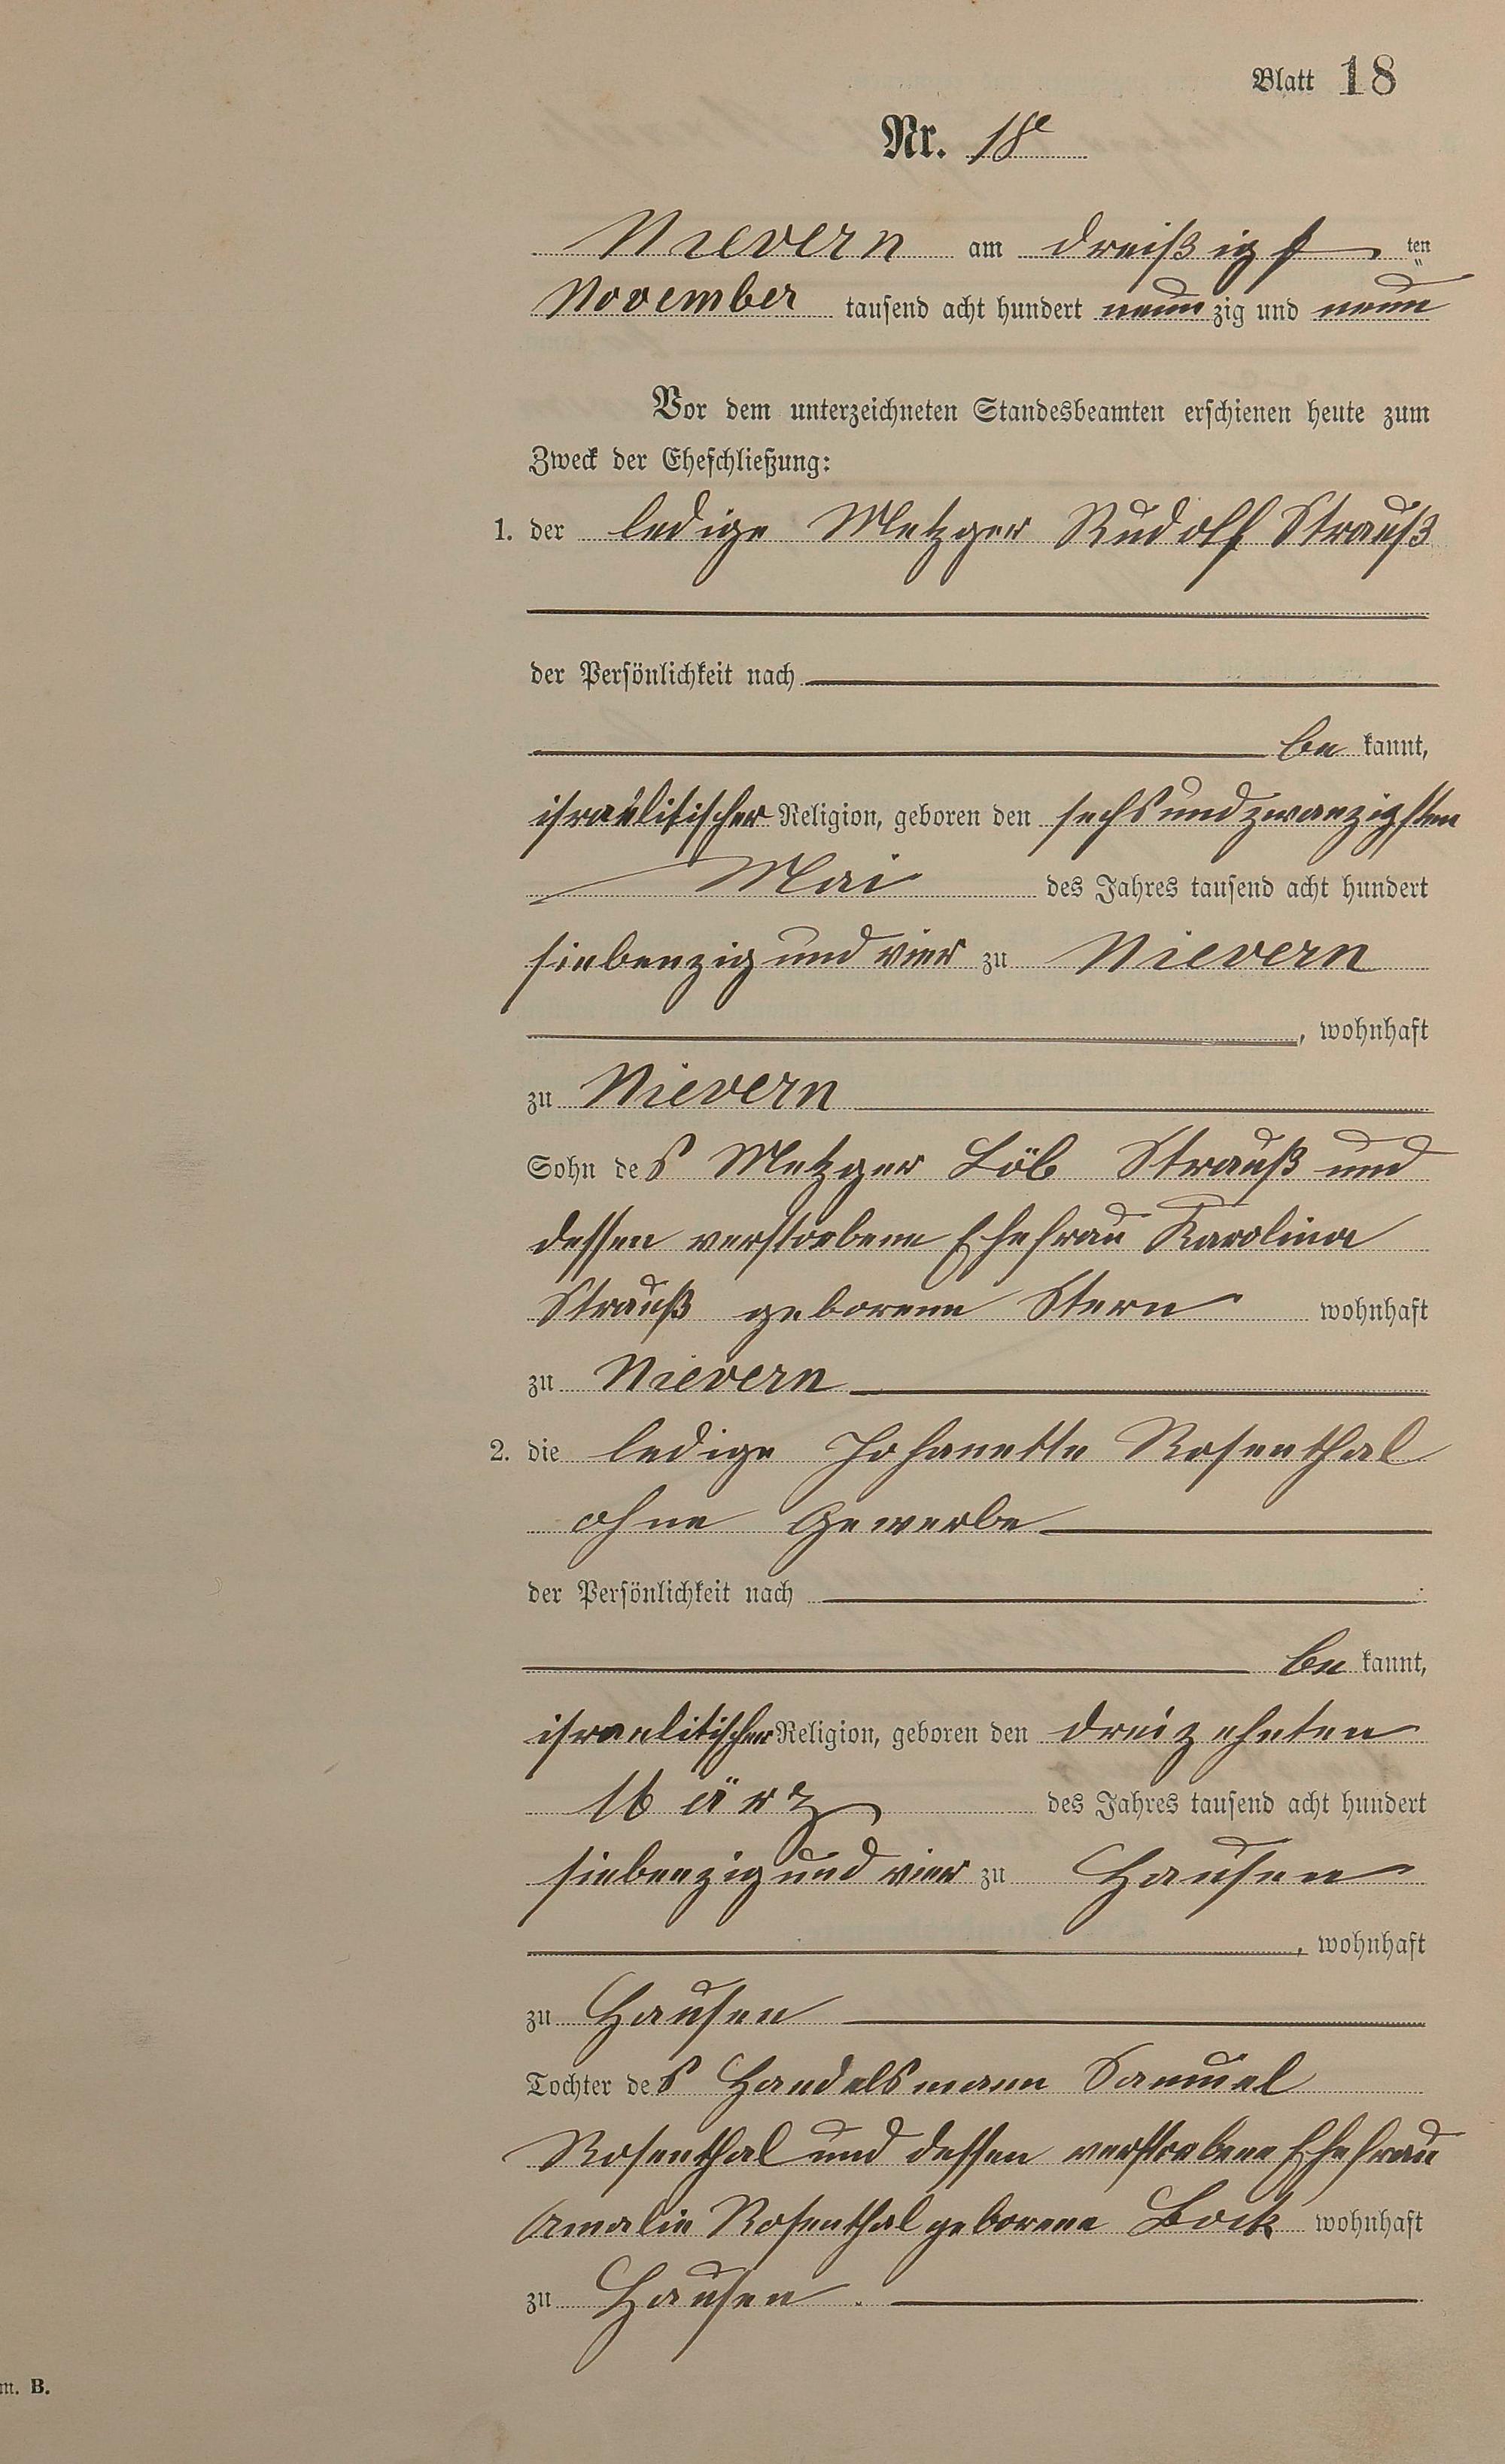 Blatt 18
Nr. 18e
Nievern am dreißigsten
November tausend acht hundert neunzig und neun
Vor dem unterzeichneten Standesbeamten erschienen heute zum
Zweck der Eheschließung:
1. der ledige Metzger Rudolf Strauß
der Persönlichkeit nach
bekannt,
israelitischer Religion, geboren den sechsundzwanzigsten
Mai des Jahres tausend acht hundert
siebenzig und vier zu Nievern
, wohnhaft
zu Nievern
Sohn des Metzger Löb Strauß und
dessen verstorbene Ehefrau Karolina
Strauß geborene Stern wohnhaft
zu Nievern
2. die ledige Johanette Rosenthal
ohne Gewerbe
der Persönlichkeit nach
bekannt,
israelitischer Religion, geboren den dreizehnten
März des Jahres tausend acht hundert
siebenzig und vier zu Hausen
, wohnhaft
zu Hausen
Tochter des Handelsmann Samuel
Rosenthal und dessen verstorbene Ehefrau
Amalie Rosenthal geborene Bock wohnhaft
zu Hausen.
m. B.